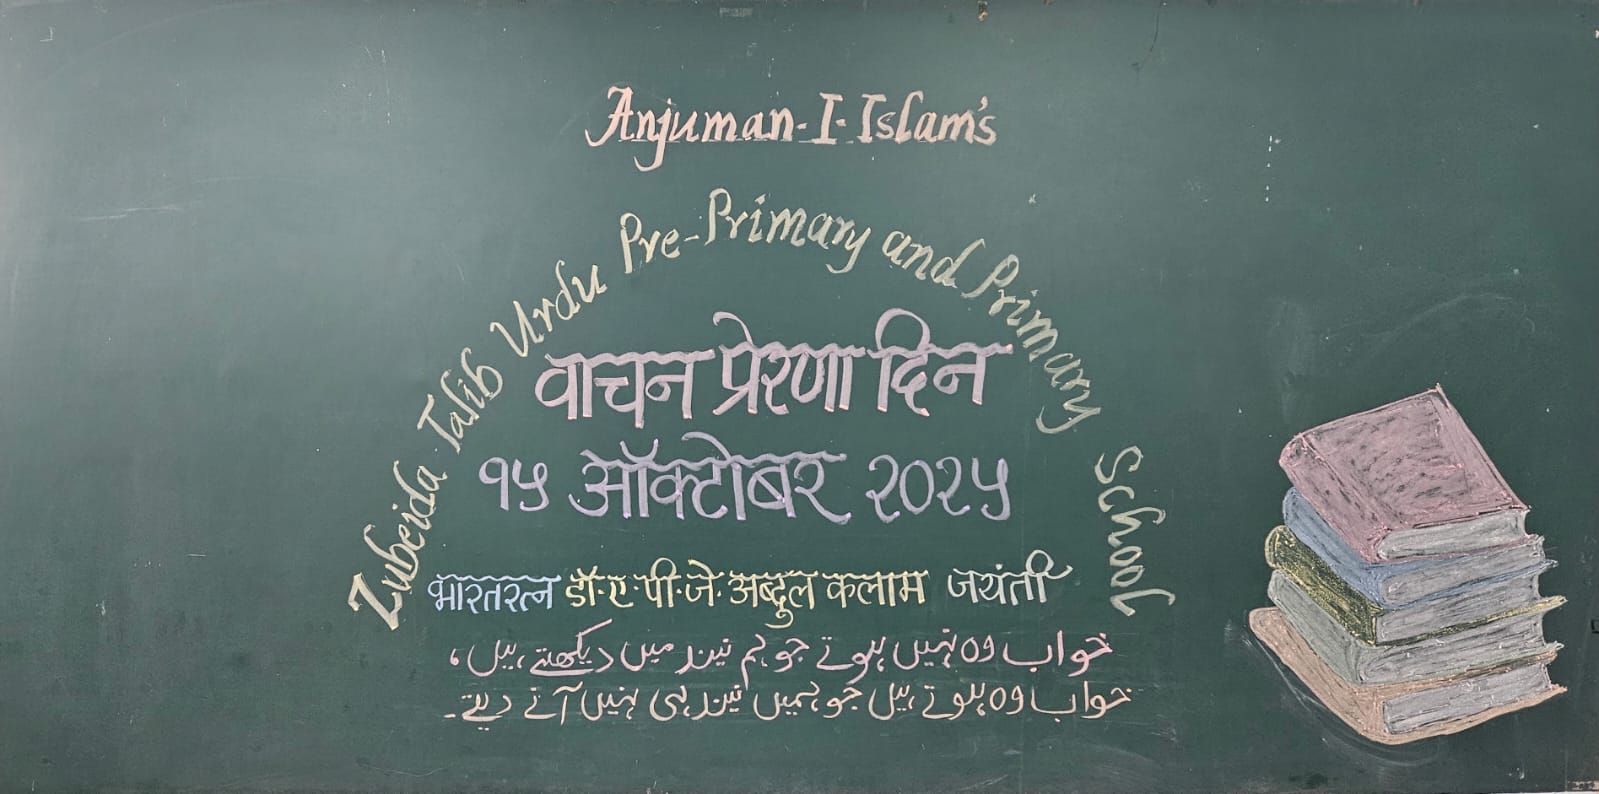 Anjuman-I-Islam's
Zubeida Talib Urdu Pre-Primary and Primary School
वाचन प्रेरणा दिन
१५ ऑक्टोबर २०२५
भारतरत्न डॉ.ए.पी.जे.अब्दुल कलाम जयंती
خواب وہ نہیں ہوتے جو ہم نیند میں دیکھتے ہیں،
خواب وہ ہوتے ہیں جو ہمیں نیند ہی نہیں آنے دیتے۔